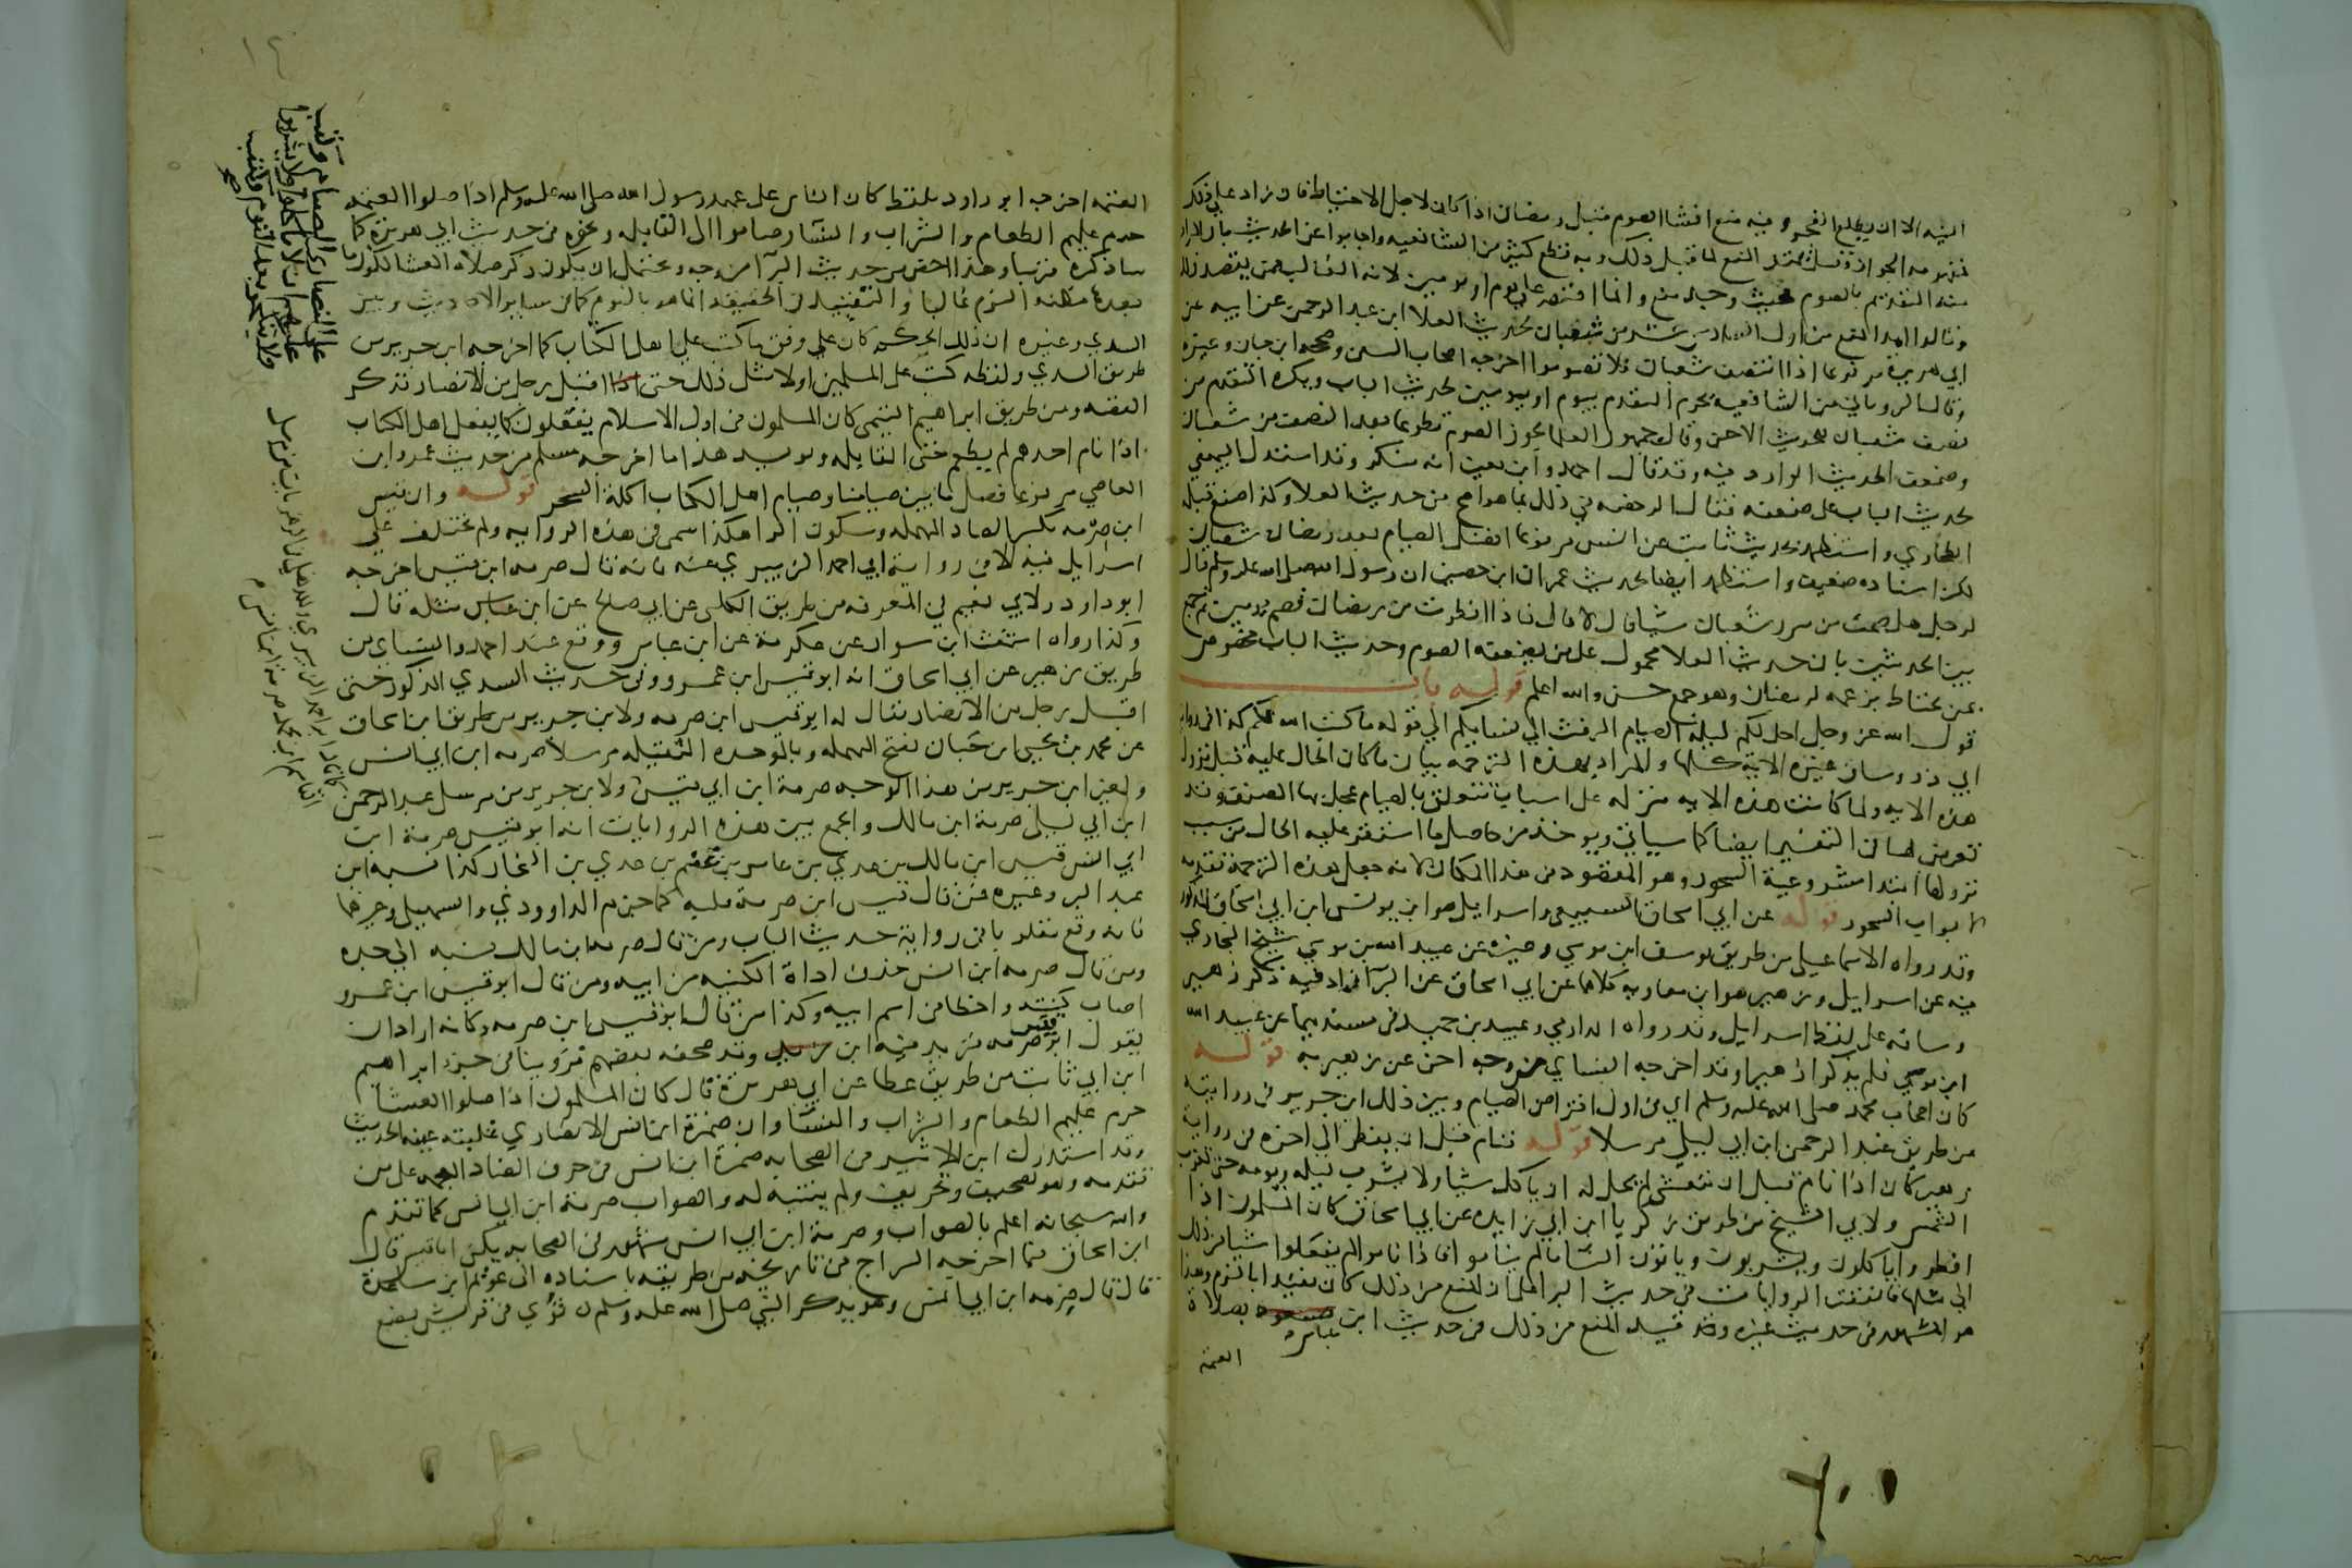 اليه الا ان يطلع الفجر وفيه منع انشاء الصوم قبل رمضان اذا كان لاجل الاحتياط فان زاد على ذلك
فمفهومه الجواز وقيل يمتد المنع لما قبل ذلك وبه قطع كثير من الشافعيه واجابوا عن الحديث بان المراد
منه التقديم بالصوم فحيث وجد منع وانما اقتصر على يوم او يومين لانه الغالب ممن يقصد ذلك
وقالوا امد المنع من اول السادس عشر من شعبان لحديث العلا ابن عبد الرحمن عن ابيه عن
ابي هريرة مرفوعا اذا انتصف شعبان فلا تصوموا اخرجه اصحاب السنن وصححه ابن حبان وغيره
وقال الروياني من الشافعيه يحرم التقدم بيوم او يومين لحديث الباب ويكره التقدم من
نصف شعبان للحديث الاخر وقال جمهور العلما يجوز الصوم تطوعا بعد النصف من شعبان
وضعفوا الحديث الوارد فيه وقد قال احمد وابن معين انه منكر وقد استدل البيهقي
بحديث الباب على ضعفه فقال الرخصه في ذلك بما هو اصح من حديث العلا وكذا صنع قبله
الطحاوي واستظهر بحديث ثابت عن انس مرفوعا افضل الصيام بعد رمضان شعبان
لكن اسناده ضعيف واستظهر ايضا بحديث عمران ابن حصين ان رسول الله صلى الله عليه وسلم قال
لرجل هل صمت من سرر شعبان شيا قال لا قال فاذا افطرت من رمضان فصم يومين ثم جمع
بين الحديثين بان حديث العلا محمول على من يضعفه الصوم وحديث الباب مخصوص
بمن يحتاط بزعمه لرمضان وهو جمع حسن والله اعلم قوله باب
قول الله عز وجل احل لكم ليلة الصيام الرفث الى نسايكم الى قوله ما كتب الله لكم كذا في رواية
ابي ذر وساق غيره الاية كلها والمراد بهذه الترجمه بيان ما كان الحال عليه قبل نزول
هذه الايه ولما كانت هذه الايه منزله على اسباب تتعلق بالصيام عجل بها المصنف وقد
تعرض لها في التفسير ايضا كما سياتي ويوخذ من حاصل ما استقر عليه الحال من سبب
نزولها ابتدا مشروعية السحور وهو المقصود في هذا المكان لانه جعل هذه الترجمة مقدمه
لابواب السحور قوله عن ابي اسحاق السبيعي واسرايل هو ابن يونس ابن ابي اسحاق المذكور
وقد رواه الاسماعيلي من طريق يوسف ابن موسى وغيره عن عبيد الله بن موسى شيخ البخاري
فيه عن اسرايل وزهير هو ابن معاويه كلاهما عن ابي اسحاق عن البرا زاد فيه ذكر زهير
وساقه على لفظ اسرايل وقد رواه الدارمي وعبيد بن حميد في مسنديهما عن عبيد الله
ابن موسى فلم يذكرا زهيرا وقد اخرجه النسائي من وجه اخر عن زهير به قوله
كان اصحاب محمد صلى الله عليه وسلم اي في اول افتراض الصيام وبين ذلك ابن جرير في روايته
من طريق عبد الرحمن ابن ابي ليلى مرسلا قوله فنام قبل ان يفطر الى اخره في رواية
زهير كان اذا نام قبل ان يتعشى لم يحل له ان ياكل شيا ولا يشرب ليله ويومه حتى تغرب
الشمس ولابي الشيخ من طريق زكريا ابن ابي زايده عن ابي اسحاق كان المسلمون اذا
افطروا ياكلون ويشربون وياتون النسا ما لم يناموا فاذا ناموا لم يفعلوا شيا من ذلك
الى مثلها فاتفقت الروايات في حديث البرا على ان المنع من ذلك كان مقيدا بالنوم وهذا
هو المشهور في حديث غيره وقد قيد المنع من ذلك في حديث ابن عباس بصلاة
العتمة
العتمه اخرجه ابو داود بلفظ كان الناس على عهد رسول الله صلى الله عليه وسلم اذا صلوا العتمه
حرم عليهم الطعام والشراب والنسا وصاموا الى القابله ونحوه من حديث ابي هريرة كما
ساذكره قريبا وهذا اخص من حديث البرا من وجه ويحتمل ان يكون ذكر صلاة العشا لكون ما
بعدها مظنه النوم غالبا والتقييد في الحقيقه انما هو بالنوم كما في ساير الاحاديث وبين
السدي وغيره ان ذلك الحكم كان على وفق ما كتب على اهل الكتاب كما اخرجه ابن جرير من
طريق السدي ولفظه كتب على المسلمين اولا مثل ذلك حتى اقبل رجل من الانصار فذكر
القصه ومن طريق ابراهيم التيمي كان المسلمون في اول الاسلام يفعلون كما يفعل اهل الكتاب
اذا نام احدهم لم يطعم حتى القابله ويويد هذا ما اخرجه مسلم من حديث عمرو ابن
العاصي مرفوعا فصل ما بين صيامنا وصيام اهل الكتاب اكلة السحر قوله وان قيس
ابن صرمه بكسر الصاد المهمله وسكون الرا هكذا سمي في هذه الروايه ولم يختلف على
اسرايل فيه الا في رواية ابي احمد الزبيري عنه فانه قال صرمه ابن قيس اخرجه
ابو داود ولابي نعيم في المعرفه من طريق الكلبي عن ابي صالح عن ابن عباس مثله قال
وكذا رواه اشعث ابن سوار عن عكرمة عن ابن عباس ووقع عند احمد والنسائي من
طريق زهير عن ابي اسحاق انه ابو قيس ابن عمرو وفي حديث السدي المذكور حتى
اقبل رجل من الانصار يقال له ابو قيس ابن صرمه ولابن جرير من طريق ابن اسحاق
عن محمد بن يحيى ابن حبان بفتح المهمله وبالموحده الثقيله مرسلا صرمه ابن ابي انس
ولغير ابن جرير من هذا الوجه صرمة ابن ابي قيس ولابن جرير من مرسل عبد الرحمن
ابن ابي ليلى صرمة ابن مالك والجمع بين هذه الروايات انه ابو قيس صرمة ابن
ابي انس قيس ابن مالك بن عدي بن عامر بن غنم بن عدي بن النجار كذا نسبه ابن
عبد البر وغيره فمن قال قيس ابن صرمة قلبه كما جزم الداوودي والسهيلي وغيرهما
بانه وقع مقلوبا في رواية حديث الباب ومن قال صرمه ابن مالك نسبه الى جده
ومن قال صرمه ابن انس حذف اداة الكنيه من ابيه ومن قال ابو قيس ابن عمرو
اصاب كنيته واخطا في اسم ابيه وكذا من قال ابو قيس ابن صرمه وكانه اراد ان
يقول ابو قيس صرمه فزيد فيه ابن وقد صحفه بعضهم فروينا في جزء ابراهيم
ابن ابي ثابت من طريق عطا عن ابي هريرة قال كان المسلمون اذا صلوا العشا
حرم عليهم الطعام والشراب والنسا وان ضمرة ابن انس الانصاري غلبته عينه الحديث
وقد استدرك ابن الاثير في الصحابه ضمرة ابن انس في حرف الضاد المعجمه على من
تقدمه وهو تصحيف وتحريف ولم يتنبه له والصواب صرمة ابن ابي انس كما تقدم
والله سبحانه اعلم بالصواب وصرمة ابن ابي انس مشهور في الصحابه يكنى ابا قيس قال
ابن اسحاق فيما اخرجه السراج في تاريخه من طريقه باسناده الى عويم ابن ساعدة
قال قال صرمه ابن ابي انس وهو يذكر النبي صلى الله عليه وسلم ثوى في قريش بضع
على النصارى الصيام وكتب
عليهم ان لا ياكلوا ولا يشربوا
ولا ينكحوا بعد النوم وكتب